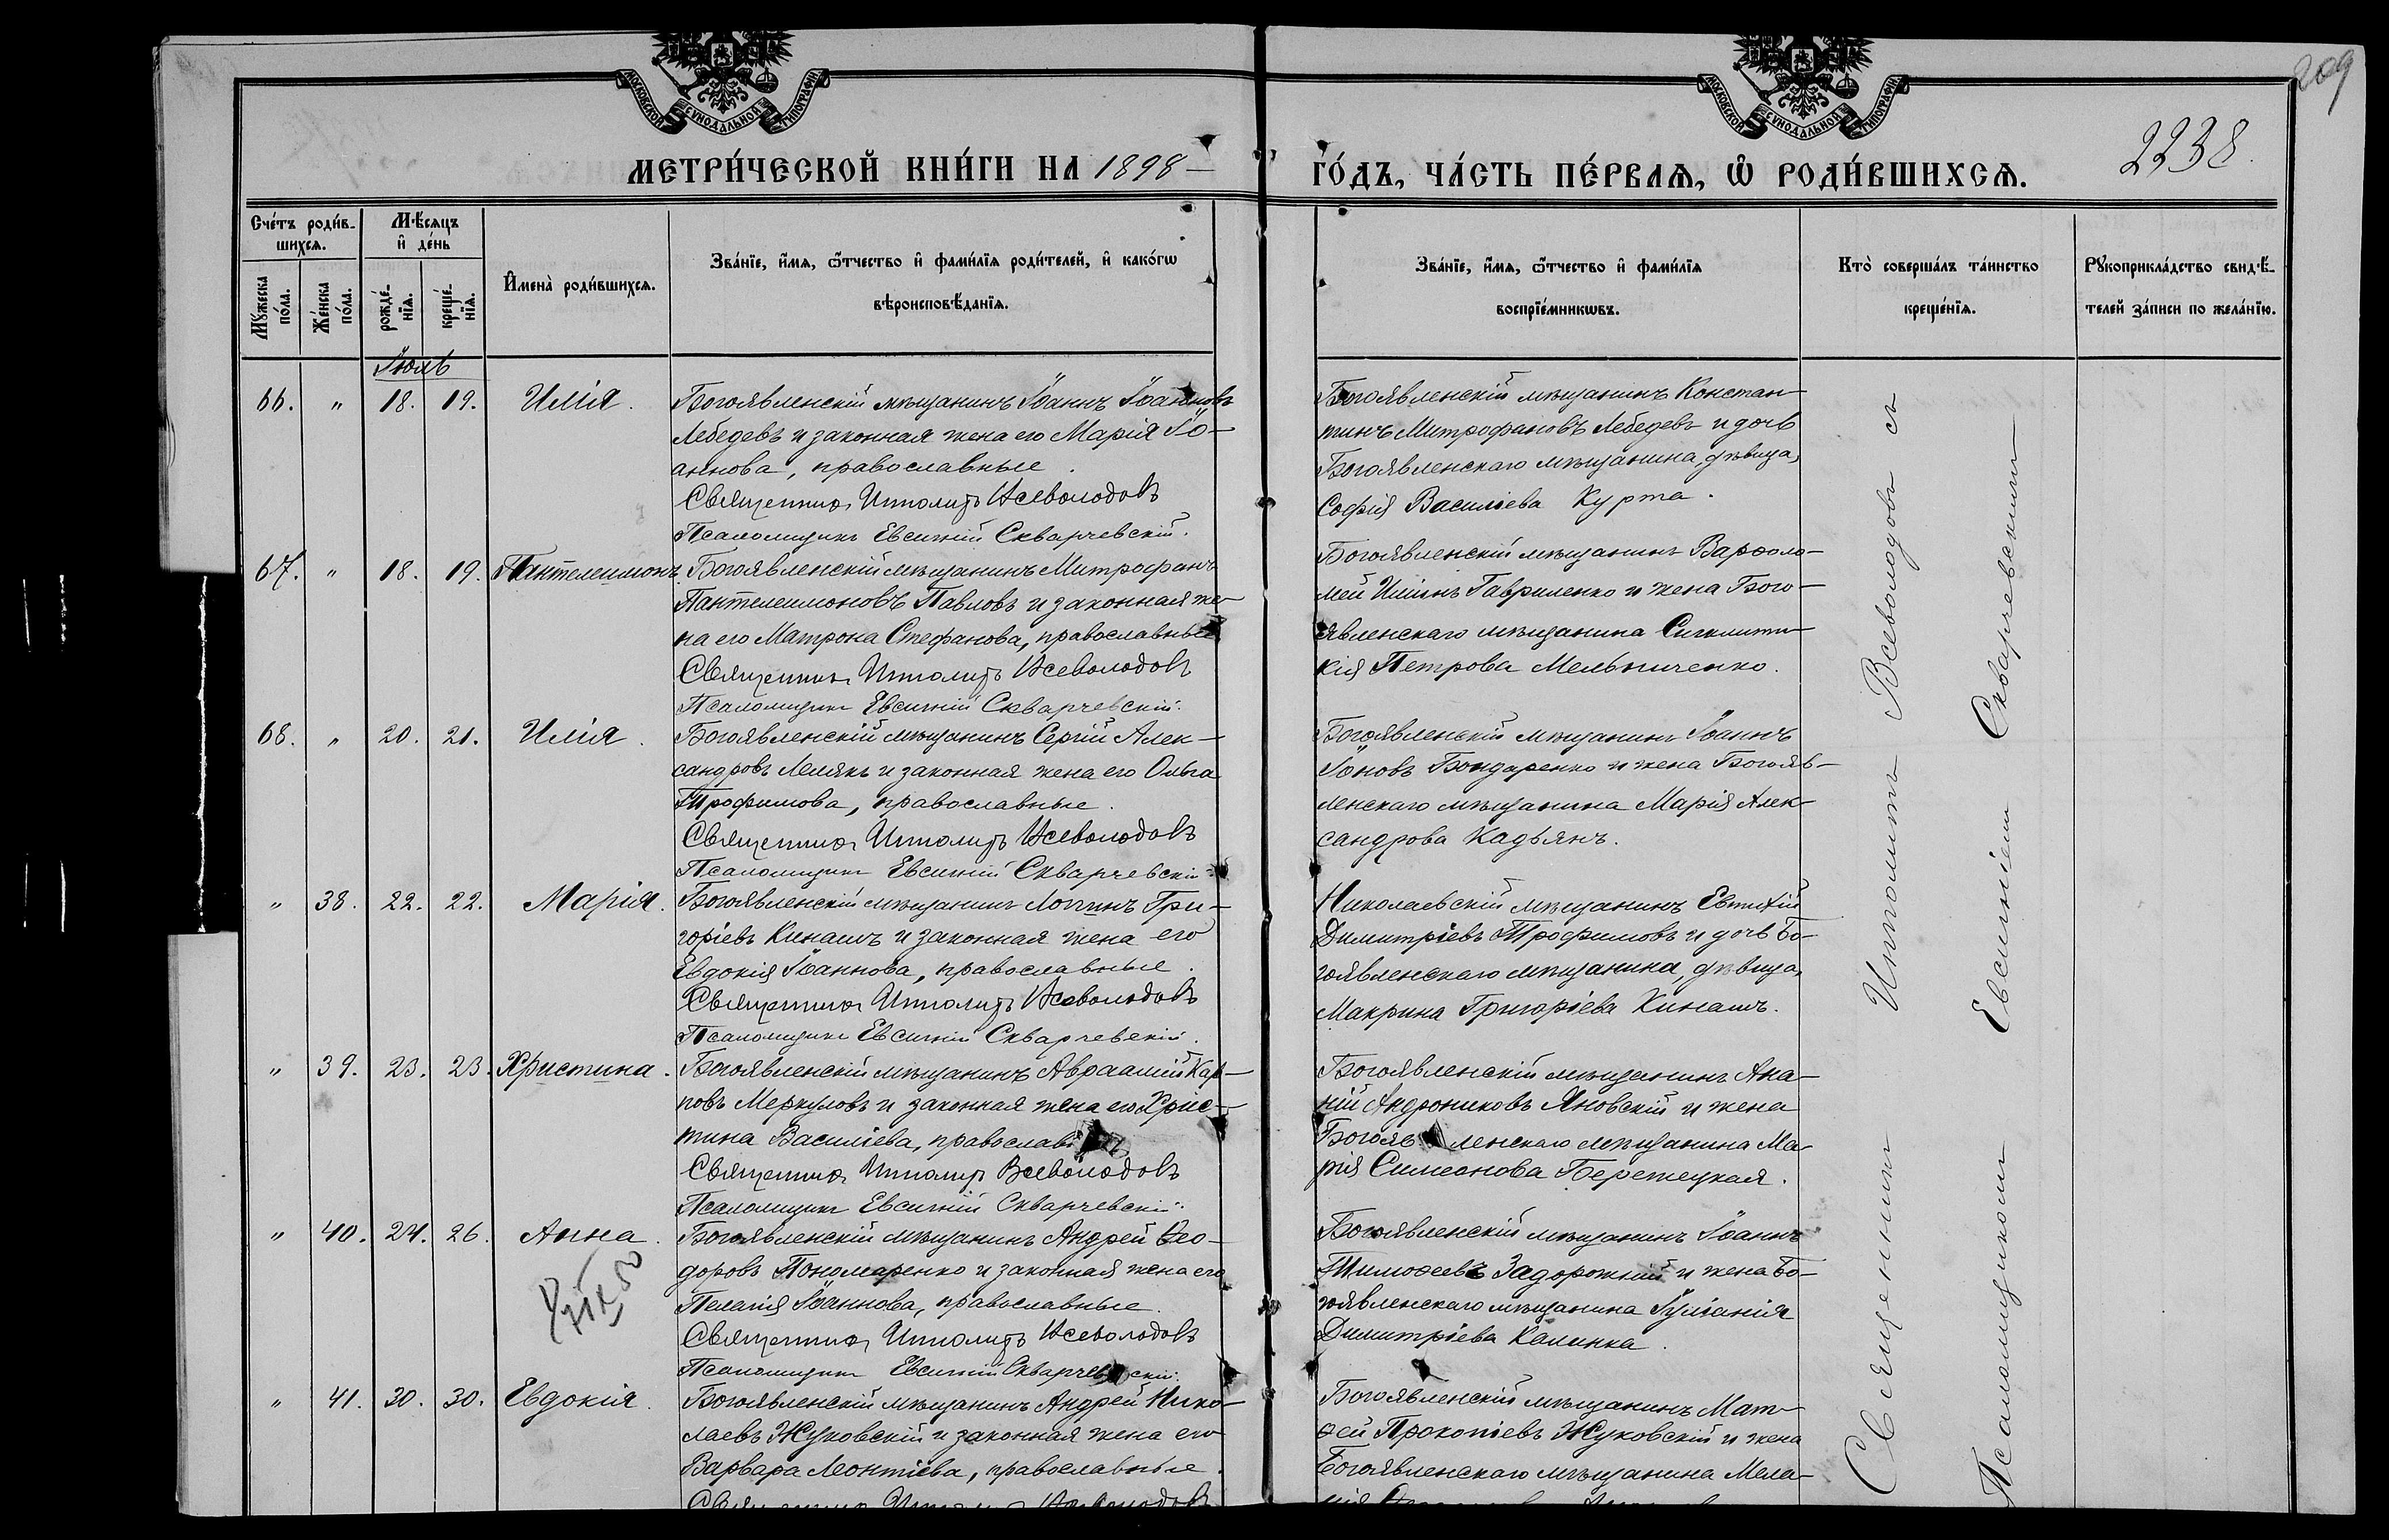 209
2238.
МОСКОВСКОЙ СѴНОДАЛЬНОЙ ТИПОГРАФІИ
МОСКОВСКОЙ СѴНОДАЛЬНОЙ ТИПОГРАФІИ
МЕТРИ́ЧЕСКОЙ КНИ́ГИ НА 1898 — ГО́ДЪ, ЧА́СТЬ ПЕ́РВАѦ, Ѡ҆ РОДИ́ВШИХСѦ.
Сче́тъ роди́в-
шихсѧ.
Мѣ́сяцъ
и҆ де́нь
Мꙋ́жеска по́ла.
Же́нска по́ла.
рожде́-
нїѧ.
креще́-
нїѧ.
И҆мена̀ роди́вшихсѧ.
Зва́нїе, и҆́мѧ, ѻ҆́тчество и҆ фами́лїѧ роди́телей, и҆ како́гѡ
вѣроисповѣ́данїѧ.
Зва́нїе, и҆́мѧ, ѻ҆́тчество и҆ фами́лїѧ
воспрїе́мникѡвъ.
Кто̀ соверша́лъ та́инство
креще́нїѧ.
Рꙋкоприкла́дство свидѣ́-
телей за́писи по жела́нїю.
Іюль
66. " 18. 19. Илія.
Богоявленскій мѣщанинъ Іоаннъ Іоанновъ
Лебедевъ и законная жена его Марія Іо-
аннова, православные.
Священникъ Ипполитъ Всеволодовъ
Псаломщикъ Евсигній Скварчевскій.
Богоявленскій мѣщанинъ Констан-
тинъ Митрофановъ Лебедевъ и дочь
Богоявленскаго мѣщанина, дѣвица,
Софія Василіева Курта.
67. " 18. 19. Пантелеимонъ.
Богоявленскій мѣщанинъ Митрофанъ
Пантелеимоновъ Павловъ и законная же-
на его Матрона Стефанова, православные
Священникъ Ипполитъ Всеволодовъ
Псаломщикъ Евсигній Скварчевскій.
Богоявленскій мѣщанинъ Варѳоло-
мей Иліинъ Гавриленко и жена Бого-
явленскаго мѣщанина Сигклити-
кія Петрова Мельниченко.
68. " 20. 21. Илія.
Богоявленскій мѣщанинъ Сергій Алек-
сандровъ Лелякъ и законная жена его Ольга
Трофимова, православные.
Священникъ Ипполитъ Всеволодовъ
Псаломщикъ Евсигній Скварчевскій
Богоявленскій мѣщанинъ Іоаннъ
Іоновъ Бондаренко и жена Богояв-
ленскаго мѣщанина Марія Алек-
сандрова Кадьянъ.
" 38. 22. 22. Марія.
Богоявленскій мѣщанинъ Логгинъ Гри-
горіевъ Кинашъ и законная жена его
Евдокія Іоаннова, православные.
Священникъ Ипполитъ Всеволодовъ
Псаломщикъ Евсигній Скварчевскій.
Николаевскій мѣщанинъ Евтихій
Димитріевъ Трофимовъ и дочь Бо-
гоявленскаго мѣщанина, дѣвица,
Макрина Григоріева Кинашъ.
" 39. 23. 23. Христина.
Богоявленскій мѣщанинъ Авраамій Кар-
повъ Меркуловъ и законная жена его Хрис-
тина Василіева, православ
Священникъ Ипполитъ Всеволодовъ
Псаломщикъ Евсигній Скварчевскій.
Богоявленскій мѣщанинъ Ана-
ній Андрониковъ Яновскій и жена
Богоявленскаго мѣщанина Ма-
рія Симеонова Бережецкая.
" 40. 24. 26. Анна.
Богоявленскій мѣщанинъ Андрей Ѳео-
доровъ Пономаренко и законная жена его
Пелагія Іоаннова, православные.
Священникъ Ипполитъ Всеволодовъ
Псаломщикъ Евсигній Скварчевскій.
Богоявленскій мѣщанинъ Іоаннъ
Тимоѳеевъ Задорожній и жена Бо-
гоявленскаго мѣщанина Іуліанія
Димитріева Калинка.
" 41. 30. 30. Евдокія.
Богоявленскій мѣщанинъ Андрей Нико-
лаевъ Жуковскій и законная жена его
Варвара Леонтіева, православные.
Священникъ Ипполитъ Всеволодовъ
Богоявленскій мѣщанинъ Мат-
ѳей Прокопіевъ Жуковскій и жена
Богоявленскаго мѣщанина Мела-
Священникъ Ипполитъ Всеволодовъ съ
Псаломщикомъ Евсигніемъ Скварчевскимъ